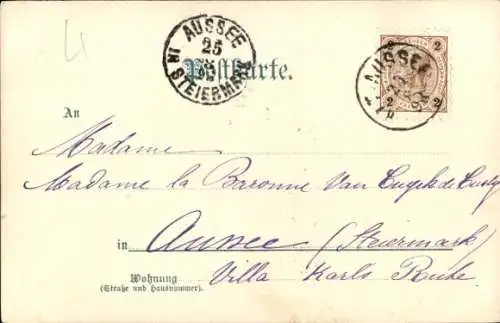 AUSSEE
25
IN STEIERMARK
Postkarte.
2 2
AUSSEE
2 2
An
Madame
Madame la Baronne Van
in Aussee (Steiermark)
Wohnung Villa Karls Ruhe
(Straße und Hausnummer).